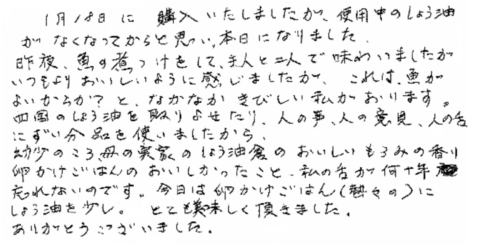 1月18日に 購入いたしましたが、使用中のしょう油
がなくなってからと思い、本日になりました。
昨夜、魚の煮つけをして、主人と二人で味わいましたが
いつもよりおいしいように感じましたが、これは、魚が
よいからか？と、なかなかきびしい私がおります。
四国のしょう油を取りよせたり、人の事、人の意見、人の舌
にずい分品を使いましたから、
幼少のころ、母の実家のしょう油倉のおいしいもろみの香り
卵かけごはんのおいしかったこと、私の舌が何十年
忘れないのです。今日は卵かけごはん(熱々の)に
しょう油を少し。とても美味しく頂きました。
ありがとうございました。